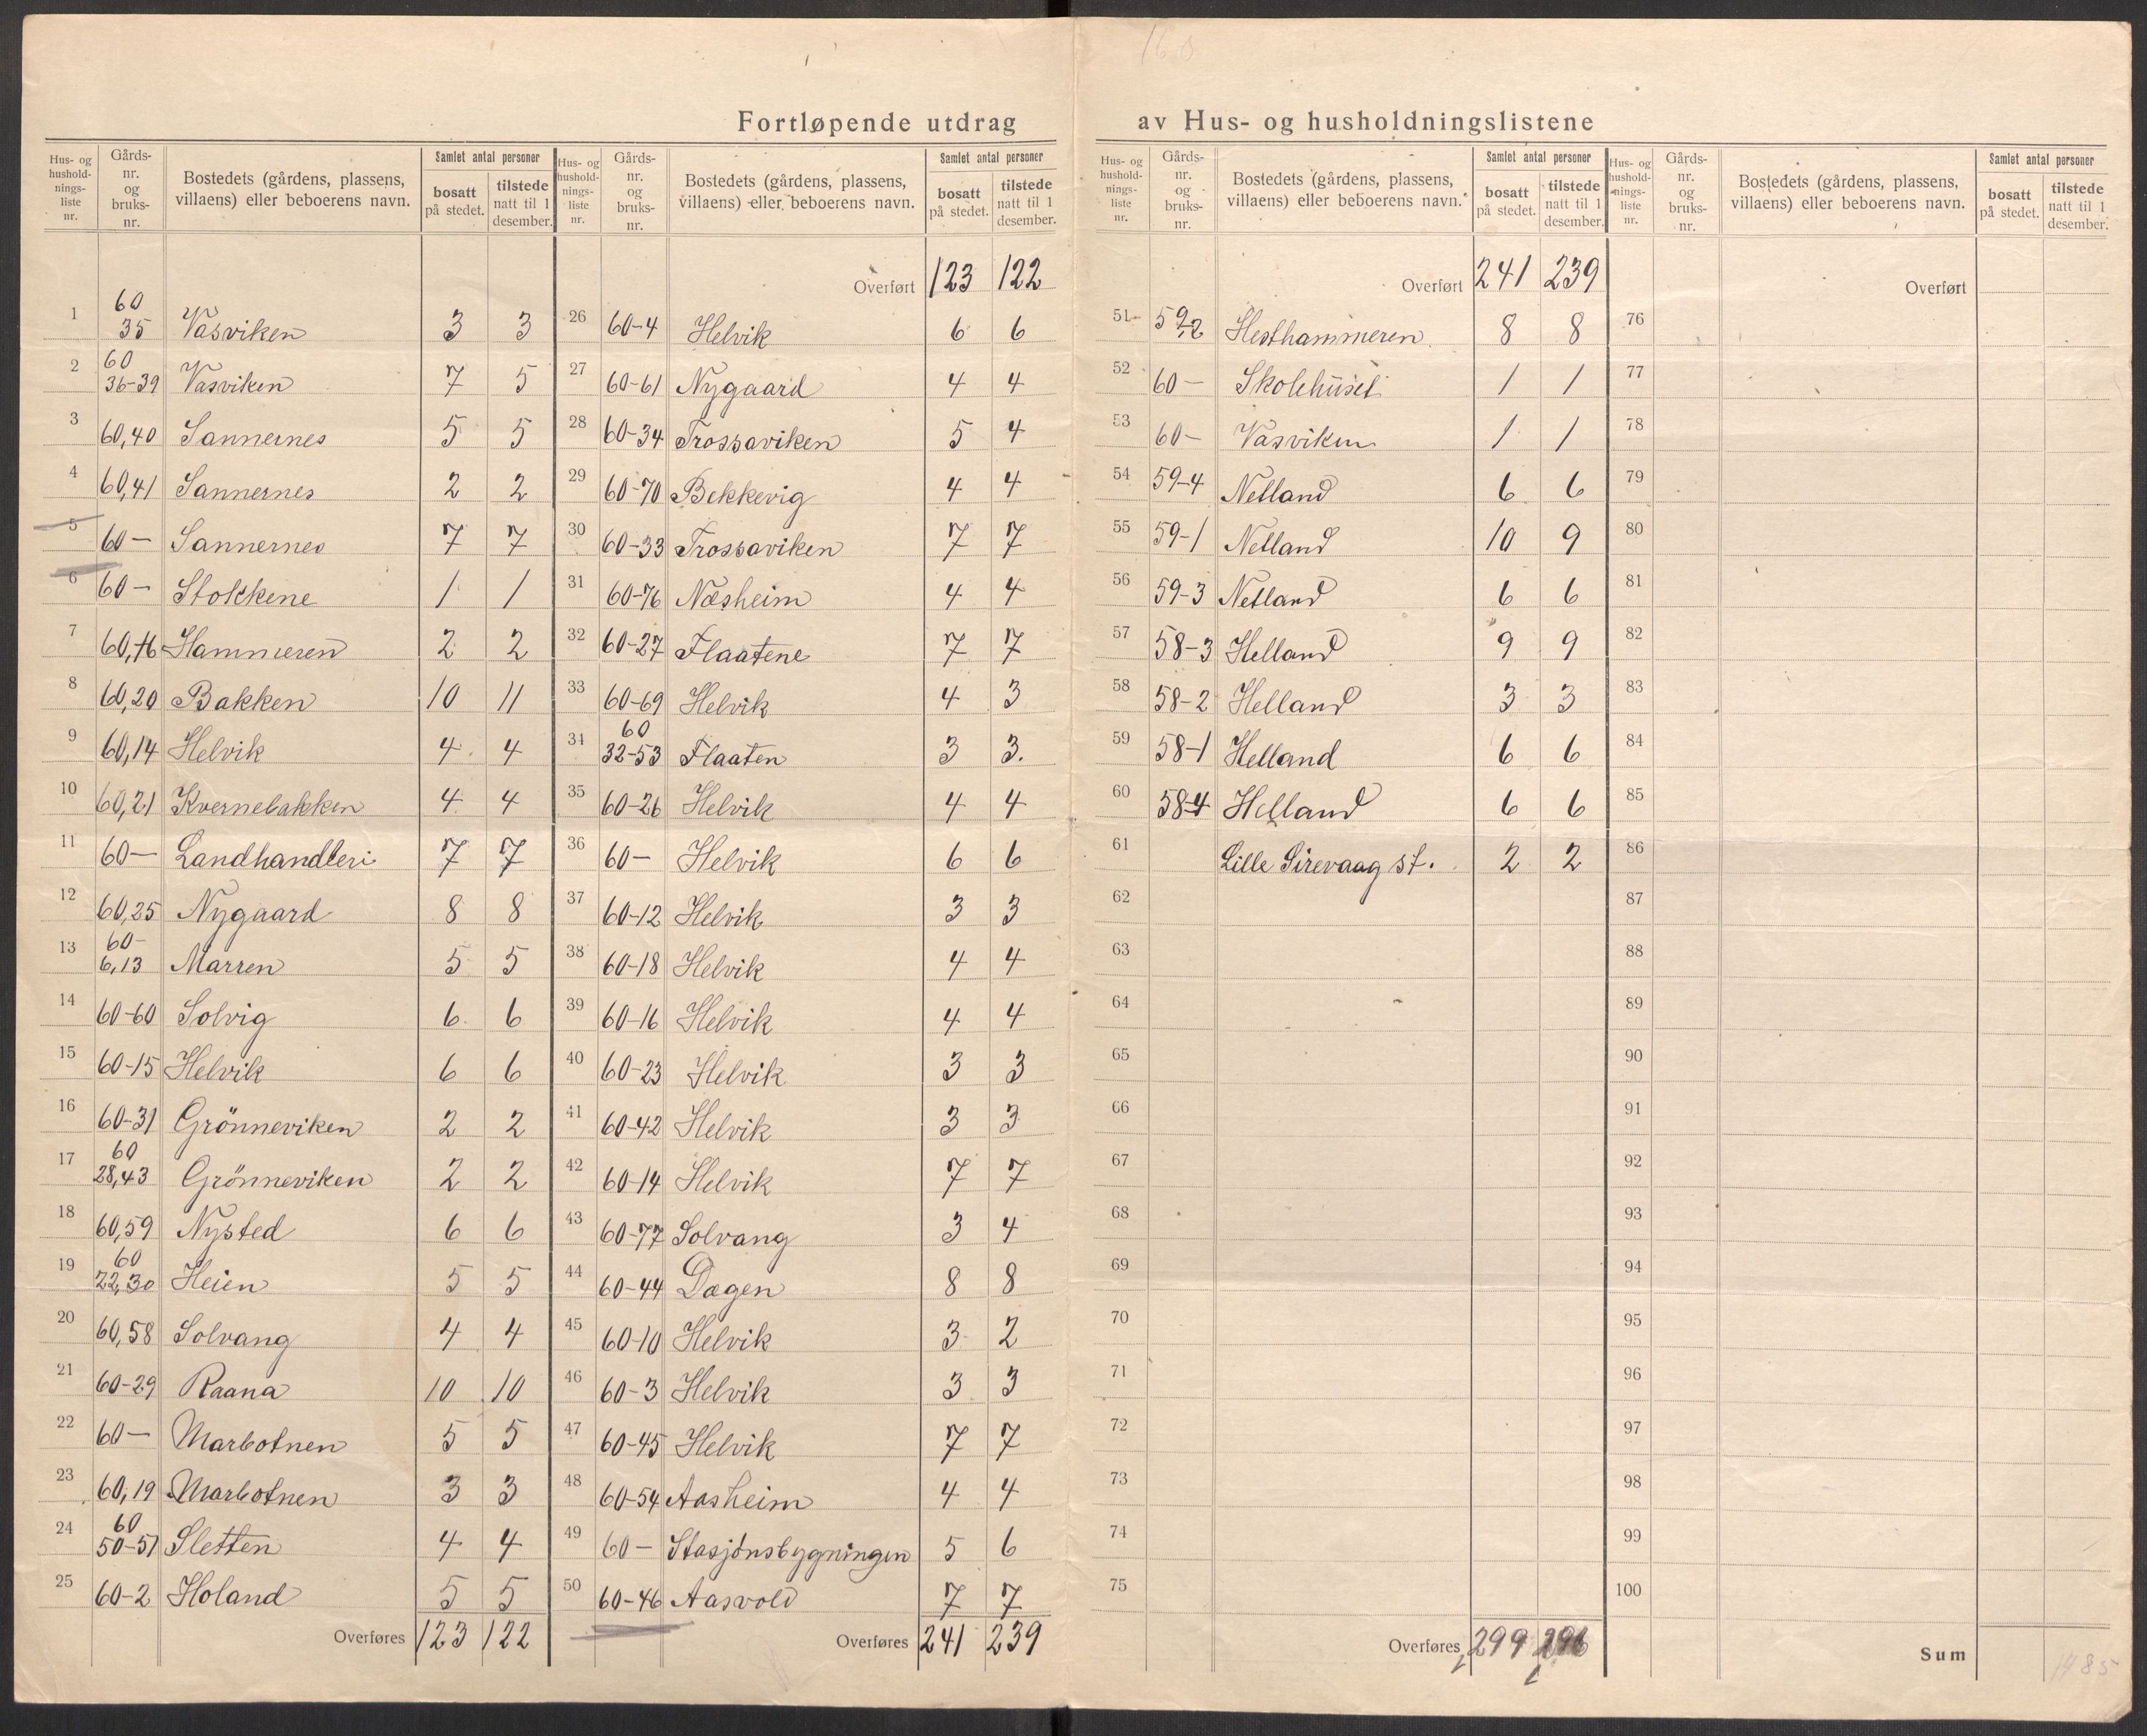 Fortløpende utdrag av Hus- og husholdningslistene
Hus- og hushold-nings-liste nr. | Gårds-nr. og bruks-nr. | Bostedets (gårdens, plassens, villaens) eller beboerens navn. | Samlet antal personer | bosatt på stedet. | tilstede natt til 1 desember.
1 60 35 Vasviken 3 3
2 60 36-39 Vasviken 7 5
3 60,40 Sannernes 5 5
4 60,41 Sannernes 2 2
5 60— Sannernes 7 7
6 60— Stokkene 1 1
7 Hammeren 2 2
8 60,20 Bakken 10 11
9 60,14 Helvik 4 4
10 60,21 Kvernebakken 4 4
11 60— Landhandleri 7 7
12 60,25 Nygaard 8 8
13 60- 6,13 Marren 5 5
14 60-60 Solvig 6 6
15 60-15 Helvik 6 6
16 60-31 Grönneviken 2 2
17 60 28,43 Grönneviken 2 2
18 60,59 Nysted 6 6
19 60 22,30 Heien 5 5
20 60,58 Solvang 4 4
21 60-29 Raana 10 10
22 60— Marbotnen 5 5
23 60,19 Marbotnen 3 3
24 60 50-51 Sletten 4 4
25 60-2 Holand 5 5
Overføres 123 122
Hus- og hushold-nings-liste nr. | Gårds-nr. og bruks-nr. | Bostedets (gårdens, plassens, villaens) eller beboerens navn. | Samlet antal personer | bosatt på stedet. | tilstede natt til 1 desember.
Overført 123 122
26 60-4 Helvik 6 6
27 60-61 Nygaard 4 4
28 60-34 Trossaviken 5 4
29 60-70 Bekkevig 4 4
30 60-33 Trossaviken 7 7
31 60-76 Næsheim 4 4
32 60-27 Flaatene 7 7
33 60-69 Helvik 4 3
34 60 32-53 Flaaten 3 3.
35 60-26 Helvik 4 4
36 60— Helvik 6 6
37 60-12 Helvik 3 3
38 60-18 Helvik 4 4
39 60-16 Helvik 4 4
40 60-23 Helvik 3 3
41 60-42 Helvik 3 3
42 60-14 Helvik 7 7
43 60-77 Solvang 3 4
44 60-44 Dagen 8 8
45 60-10 Helvik 3 2
46 60-3 Helvik 3 3
47 60-45 Helvik 7 7
48 60-54 Aasheim 4 4
49 60— Stasjonsbygningen 5 6
50 60-46 Aasvold 7 7
Overføres 241 239
Hus- og hushold-nings-liste nr. | Gårds-nr. og bruks-nr. | Bostedets (gårdens, plassens, villaens) eller beboerens navn. | Samlet antal personer | bosatt på stedet. | tilstede natt til 1 desember.
Overført 241 239
51 59,2 Hesthammeren 8 8
52 60— Skolehuset 1 1
53 60— Vasviken 1 1
54 59-4 Netland 6 6
55 59-1 Netland 10 9
56 59-3 Netland 6 6
57 58-3 Helland 9 9
58 58-2 Helland 3 3
59 58-1 Helland 6 6
60 58-4 Helland 6 6
61 Lille Sirevaag st. 2 2
62
63
64
65
66
67
68
69
70
71
72
73
74
75
Overføres 299 296
Hus- og hushold-nings-liste nr. | Gårds-nr. og bruks-nr. | Bostedets (gårdens, plassens, villaens) eller beboerens navn. | Samlet antal personer | bosatt på stedet. | tilstede natt til 1 desember.
Overført
76
77
78
79
80
81
82
83
84
85
86
87
88
89
90
91
92
93
94
95
96
97
98
99
100
Sum